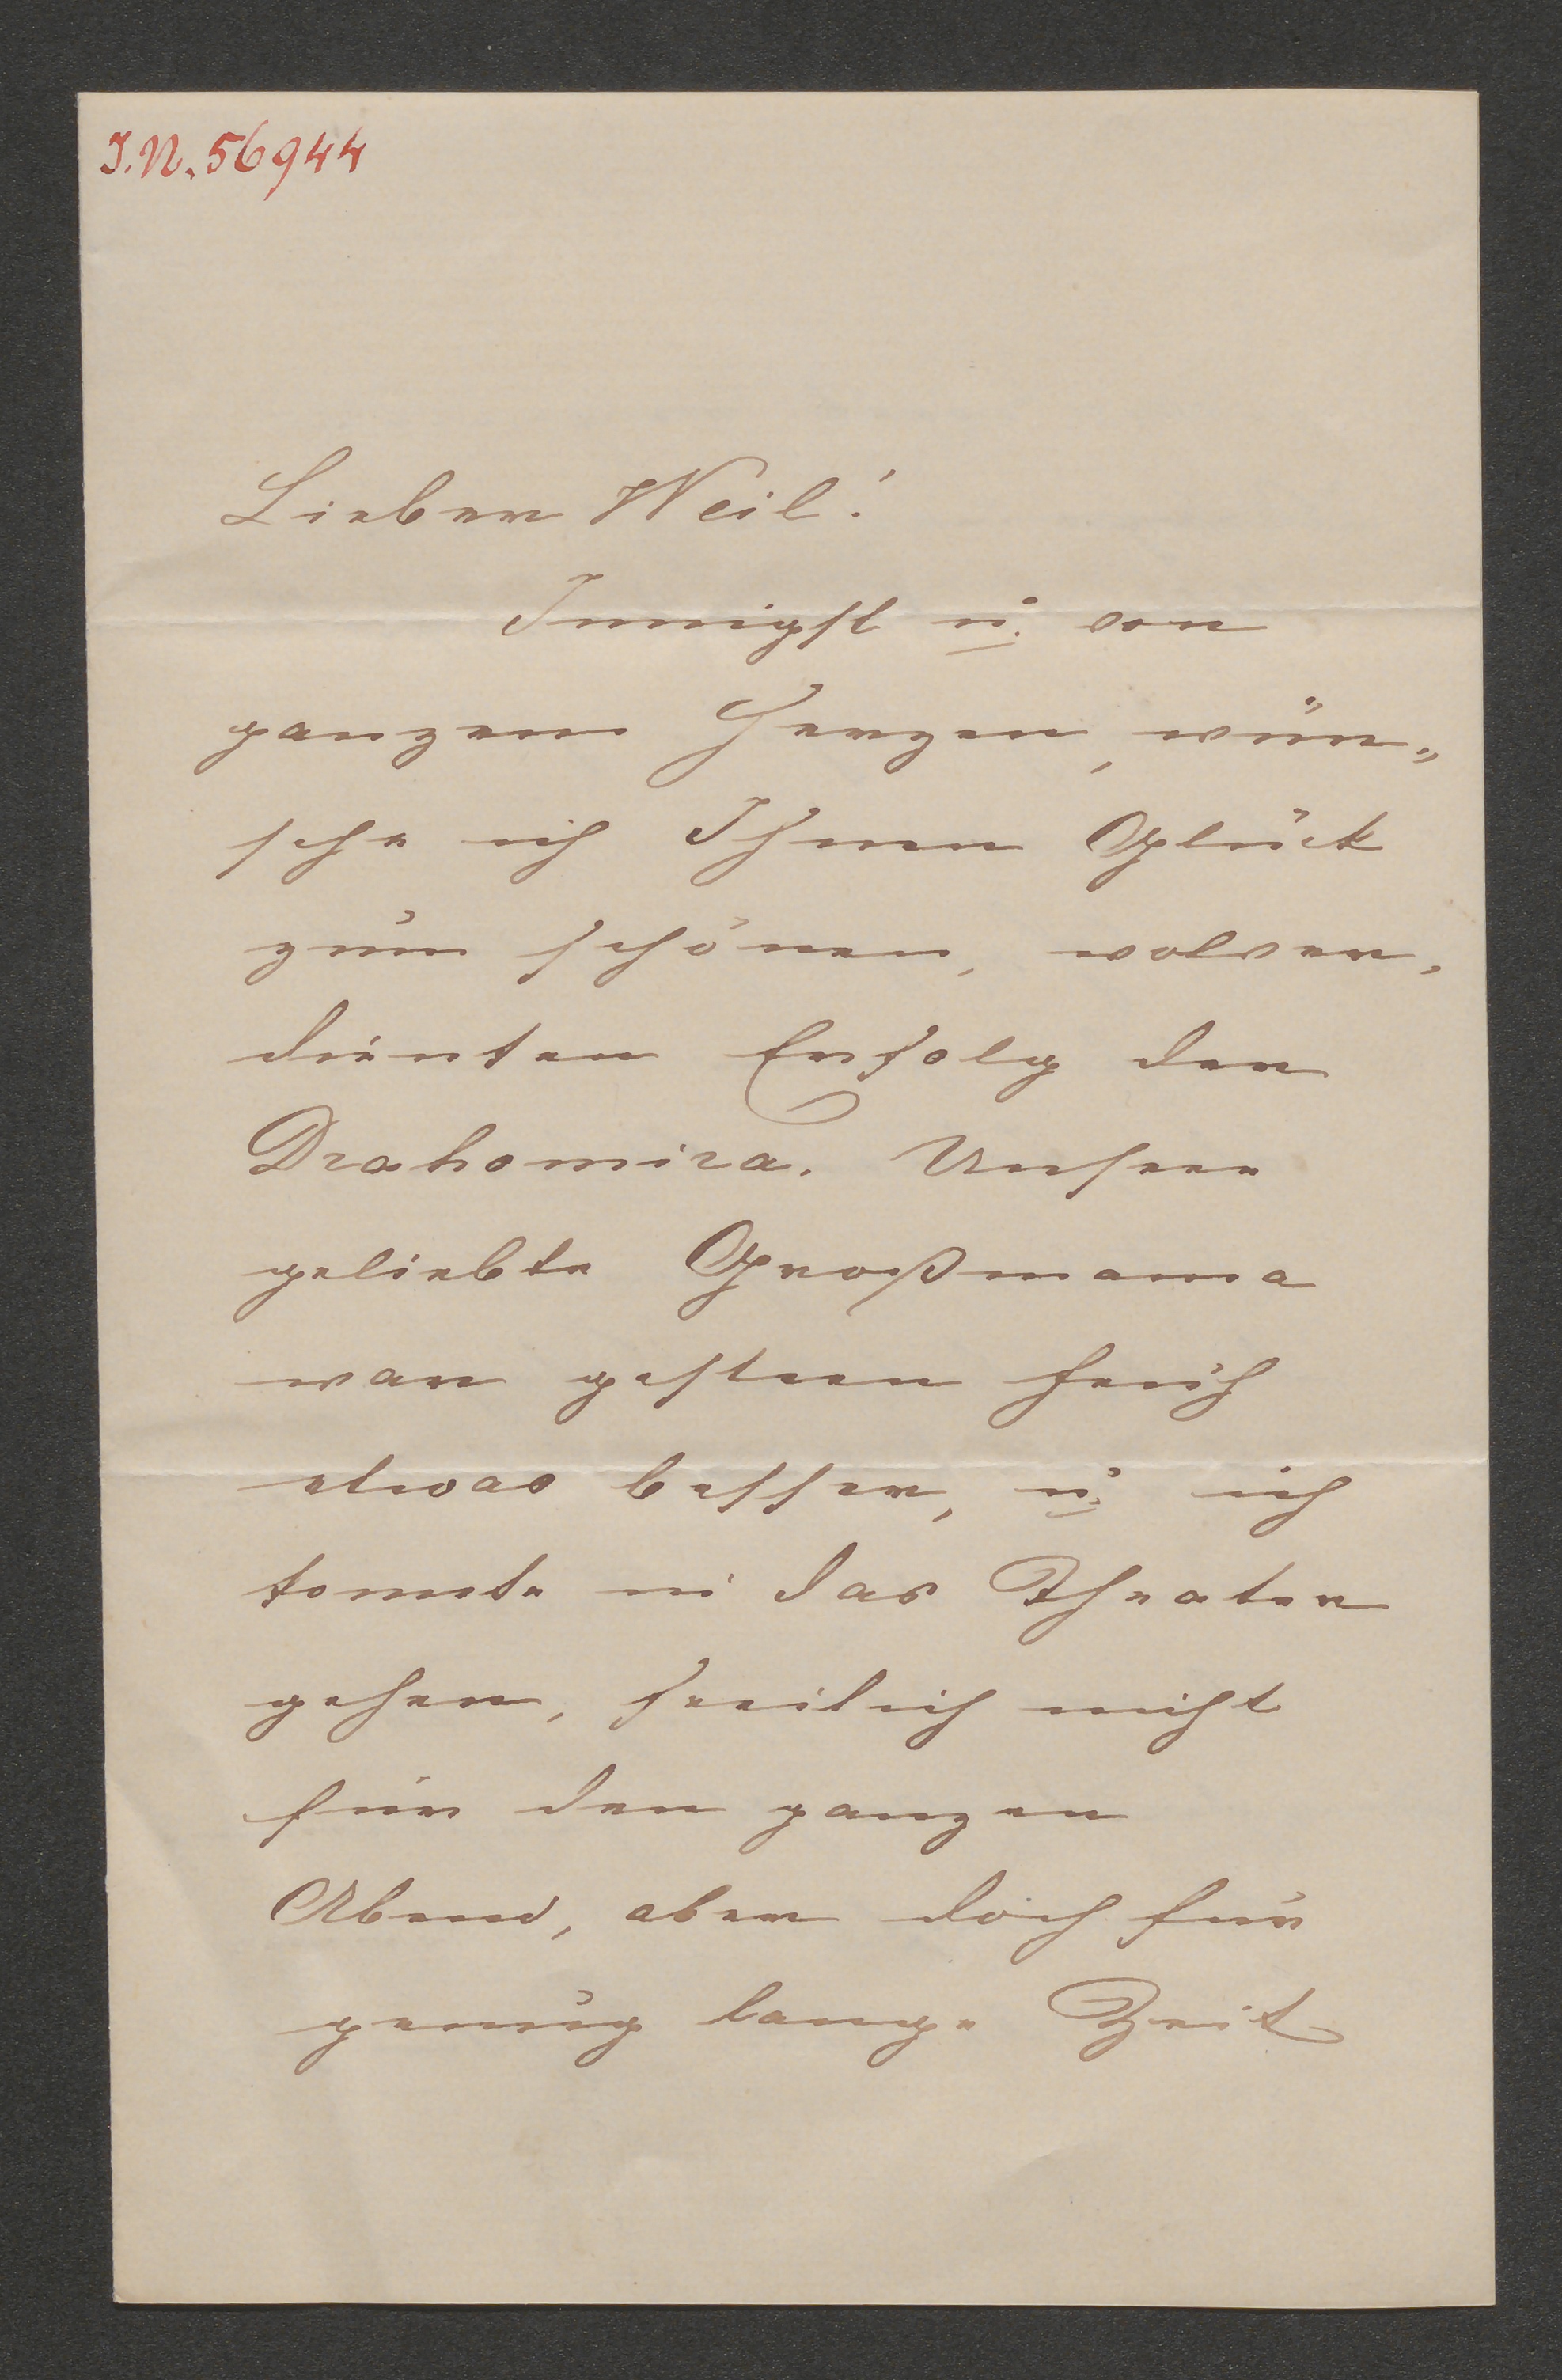 I.N. 56944
Lieber Weil!
Innigst u. von
ganzem Herzen, wün„
sche ich Ihnen Glück
zum schönen, wolver,
dienten Erfolg der
Drahomira. Unsere
geliebte Großmama
war gestern früh
etwas besser, u. ich
konnte in das Theater
gehen, freilich nicht
für den ganzen
Abend, aber doch für
genug lange Zeit